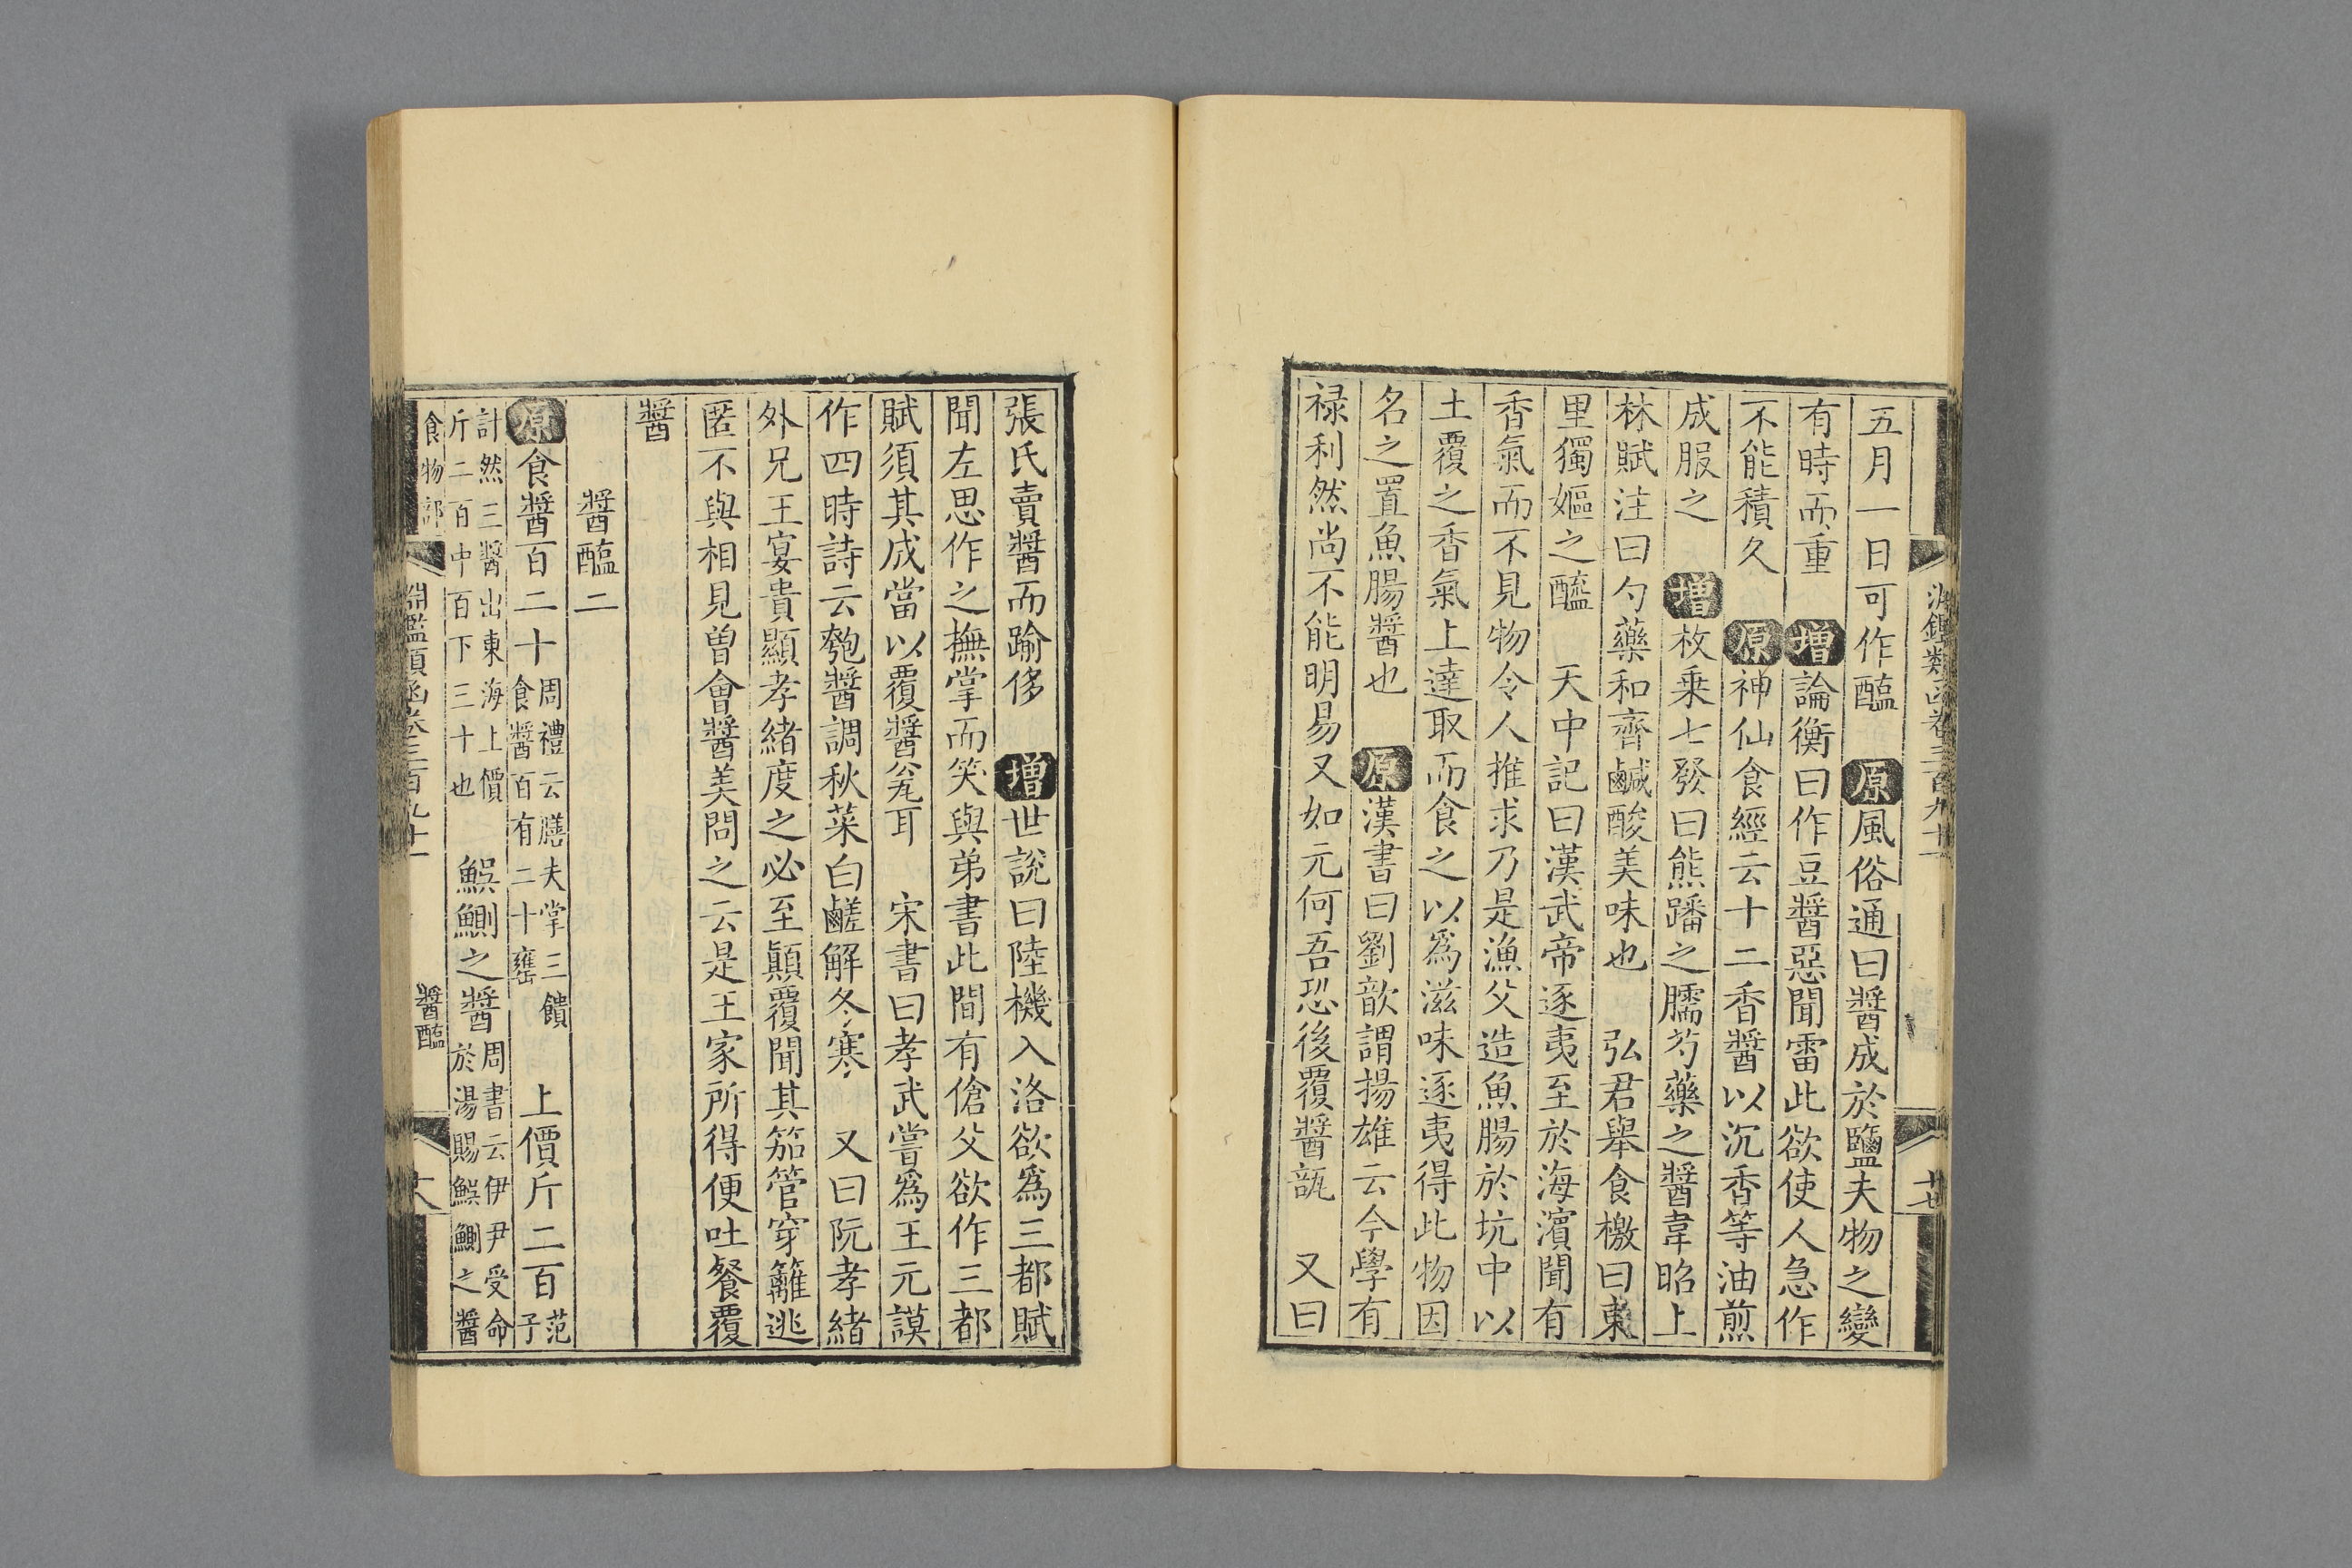 五月一日可作醢　原風俗通曰醬成於鹽夫物之變
有時而重　增論衡曰作豆醬惡聞雷此欲使人急作
不能積久　原神仙食經云十二香醬以沉香等油煎
成服之　增枚乗七發曰熊蹯之臑芍藥之醬韋昭上
林賦注曰勺藥和齊鹹酸美味也　弘君舉食檄曰東
里獨嫗之醯　天中記曰漢武帝逐夷至於海濱聞有
香氣而不見物令人推求乃是漁父造魚腸於坑中以
土覆之香氣上達取而食之以爲滋味逐夷得此物因
名之置魚腸醬也　原漢書曰劉歆謂揚雄云今學有
祿利然尚不能明易又如元何吾恐後覆醬瓿　又曰
張氏賣醬而踰侈　增世說曰陸機入洛欲爲三都賦
聞左思作之撫掌而笑與弟書此間有傖父欲作三都
賦須其成當以覆醬瓮耳　宋書曰孝武嘗爲王元謨
作四時詩云匏醬調秋菜白鹺解冬寒　又曰阮孝緒
外兄王宴貴顯孝緒度之必至顛覆聞其笳管穿籬逃
匿不與相見曾會醬美問之云是王家所得便吐餐覆
醬
醬醢二
原食醬百二十周禮云膳夫掌三饋食醬百有二十罋　上價斤二百范子
計然三醬出東海上價斤二百中百下三十也　鯸鰂之醬周書云伊尹受命於湯賜鯸鰂之醬
食物部　淵鑑類函卷三百九十一　醬醢